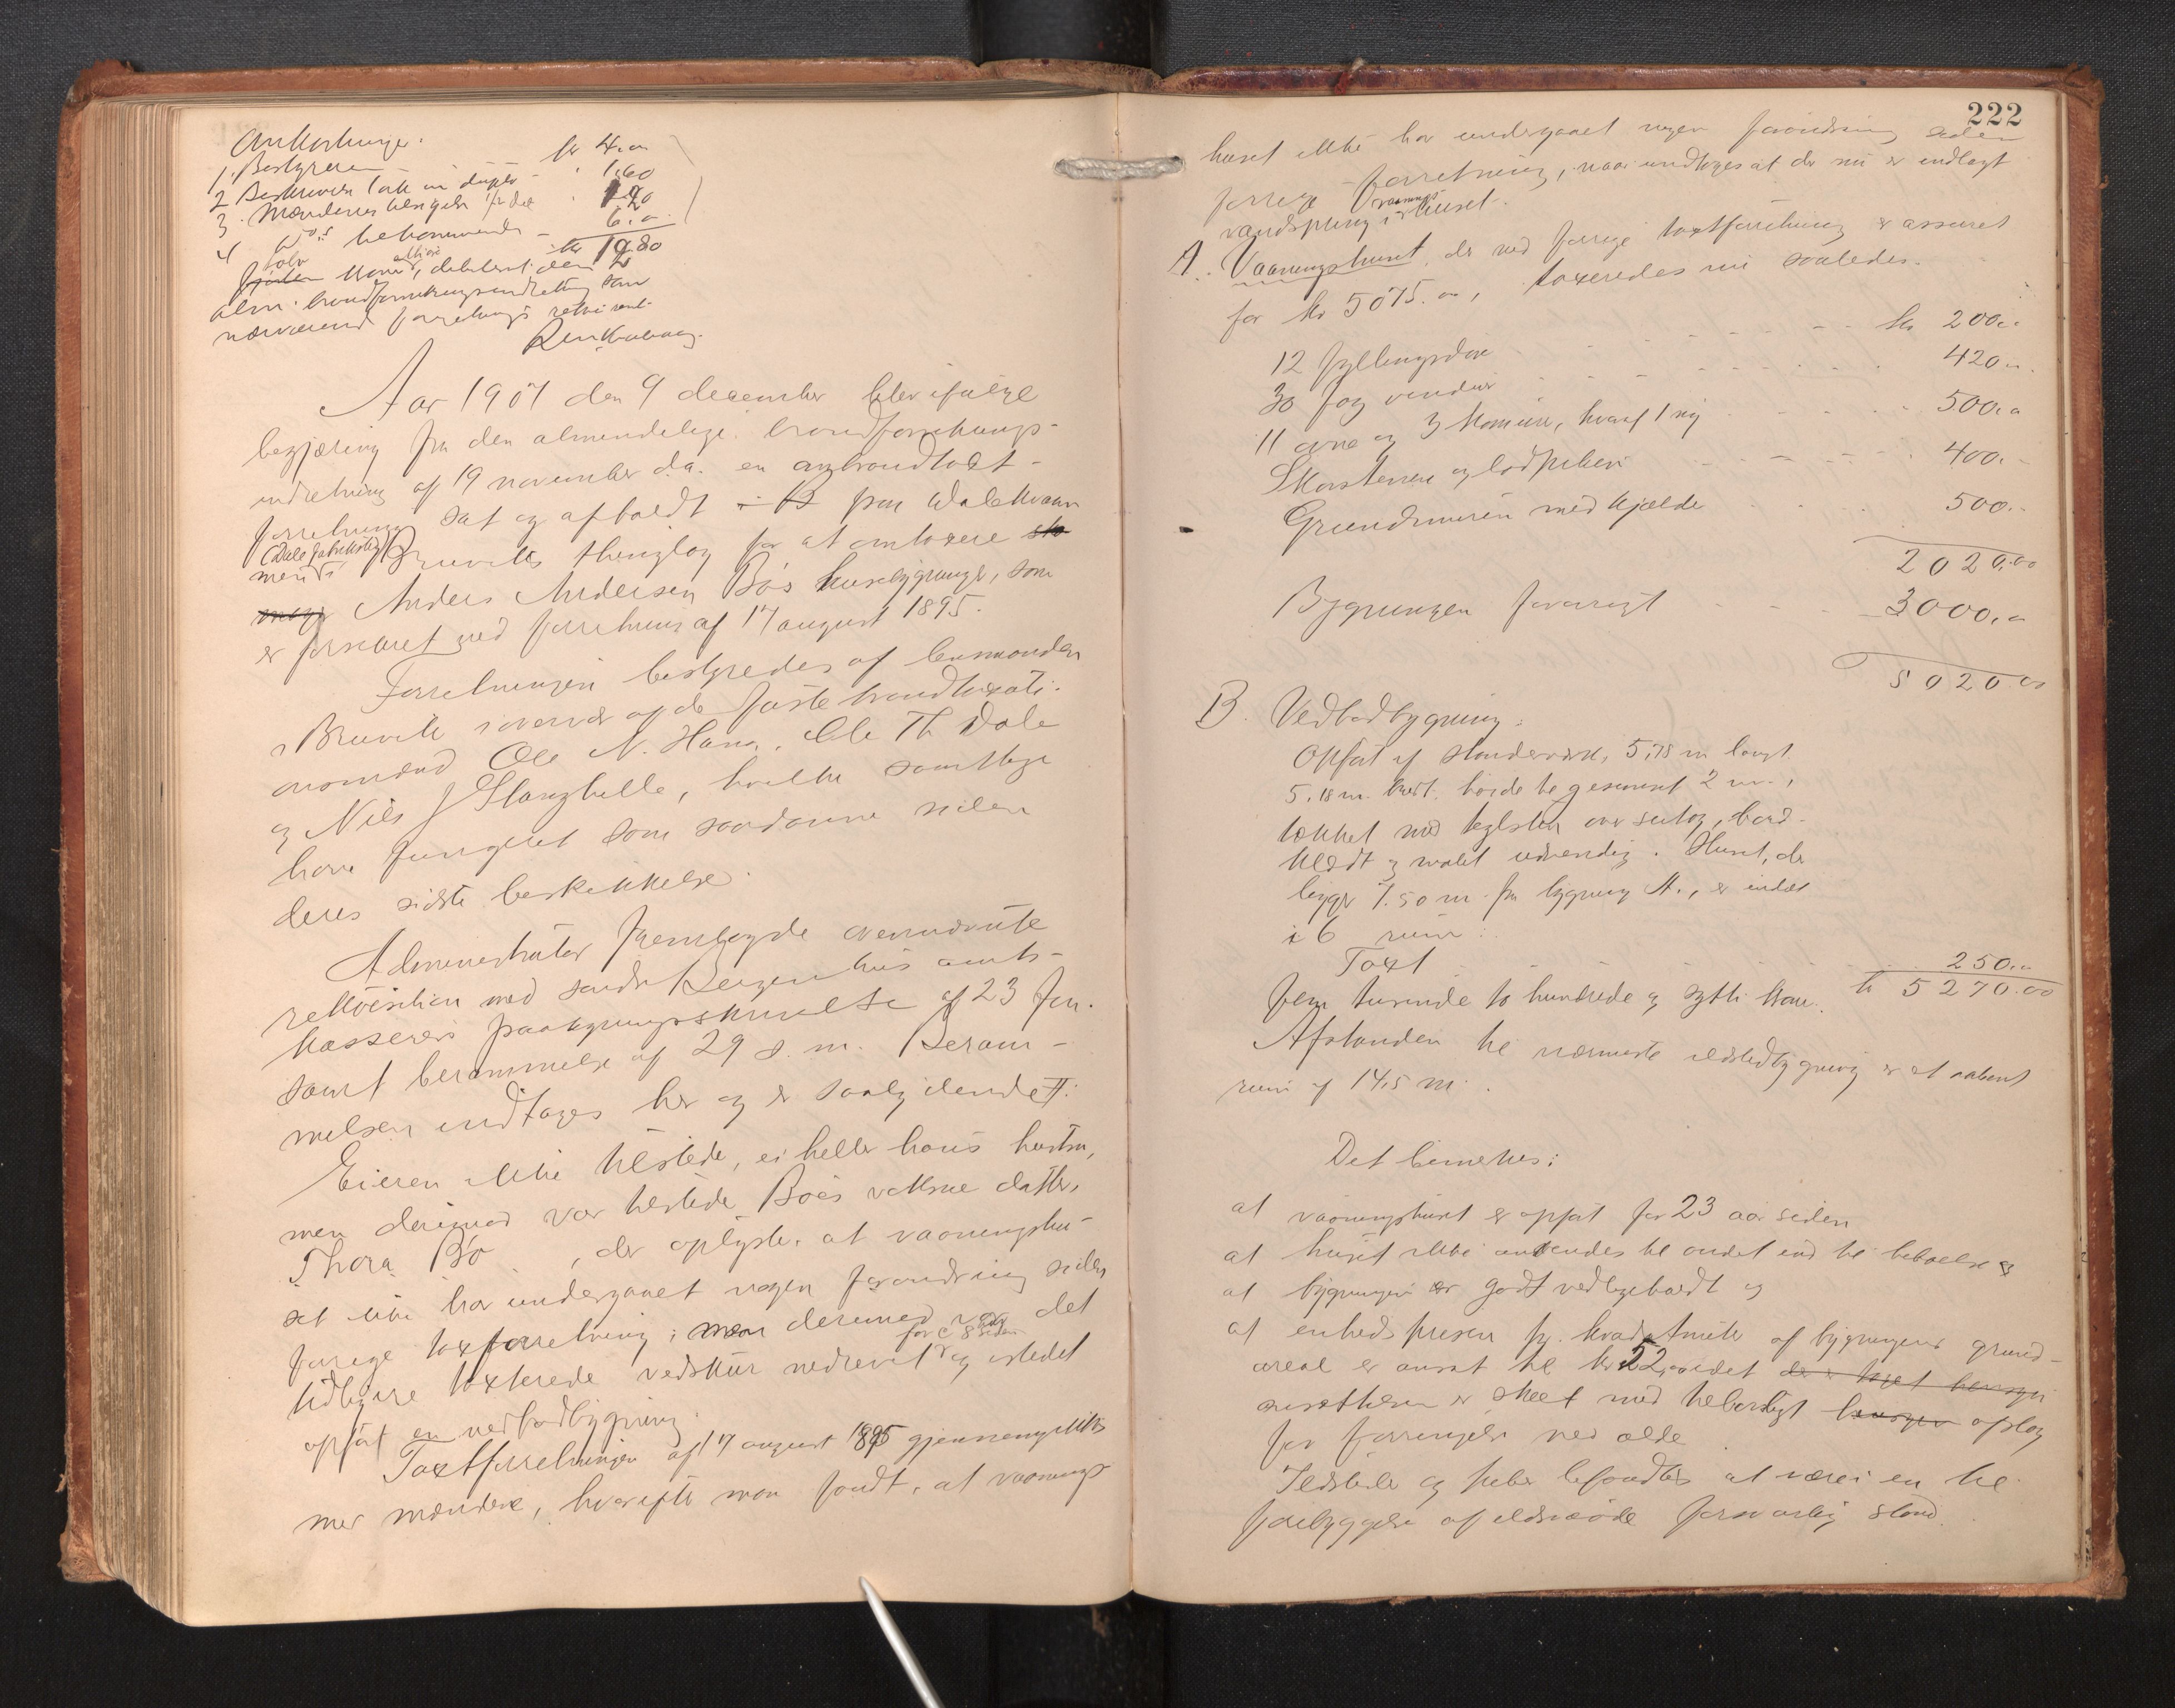 Omkostninger.
1. Bestyreren kr 4.00
2 Beskreven takt in duplo - 1.60
3. Mændenes
4 bekommende - 6.00
kr 19.80
tolv kroner, debiteret den
alm. brandforsikringsindretning som
nærværende forretnings rekvirent.
Aar 1907 den 9 december blev ifølge
begjæring fra den almindelige brandforsikrings-
indretning af 19 november d.a. en ombrandtaxt-
forretning sat og afholdt paa Dalekvam
(Dale fabriker) i Bruvik thinglag for at omtaxere
Anders Andersen Bøs husebygninger, som
er forsikret ved forretning af 17 august 1895.
Forretningen bestyredes af lensmanden
i Bruvik i nærvær af de faste brandtaxati-
onsmænd Ole N. Hana, Ole Th Dale
og Nils J Stanghelle, hvilke samtlige
have fungeret som saadanne siden
deres sidste beskikkelse.
Administrator fremlagde ovennævnte
rekvisition med søndre Bergenhus amts-
kasserers paategningsskrivelse af 23 f.m.
samt berammelse af 29 s. m. Beram-
melsen indtages her og er saalydende:
Eieren ikke tilstede, ei heller hans hustru,
men derimod var tilstede Bøes voksne datter,
Thora Bö, der oplyste, at vaaningshu-
set ikke har undergaaet nogen forandring siden
forrige taxtforretning; men derimod var det
for c 8 aar siden
tidligere taxterede vedskur nedrevet og istedet
opført en vedbodbygning.
Taxtforretningen af 17 august 1895 gjennemgikkes
mer mændene, hvorefter man fandt, at vaanings-
222
huset ikke har undergaaet nogen forandring siden
forrige forretning, naar undtages at der nu er indlagt
vandspring i vaaningshuset.
A. Vaaningshuset, der ved forrige taxtforretning er assureret
for kr 5075.00, taxeredes nu saaledes:
12 fyllingsdøre kr 200.00
30 fag vinduer 420.00
11 ovne og 3 komfure, hvoraf 1 ny 500.00
Skorstenen og lodpiben 400.-
Grundmuren med kjælder 500.-
2020.00
Bygningen forøvrigt 3000.00
5020.00
B. Vedbodbygning:
Opført af stenderværk, 5,78 m langt
5.18 m. bredt. høide til gesimset 2 m.,
tækket med taglsten over sutag, bord-
klædt og malet udvendig. Huset, der
ligger 7.50 m. fra bygning A., er inddelt
i 6 rum:
Taxt 250.00
fem tusinde to hundrede og sytti kroner. kr 5270.00
Afstanden til nærmeste ildstedbygning er et aabent
rum af 14,5 m.
Det bemerkes:
at vaaningshuset er opført for 23 aar siden
at huset ikke anvendes til andet end til beboelse &
at bygningen er godt vedligeholdt og
at enhedsprisen pr. kvadratmeter af bygningens grund-
areal er ansat til kr 52, idet der er taget hensyn
ansættelsen er skeet med tilbørligt hensyn afslag
for forringelse ved ælde
Ildsteder og piber befandtes at være i en til
forebyggelse af ildsvaade forsvarlig stand.